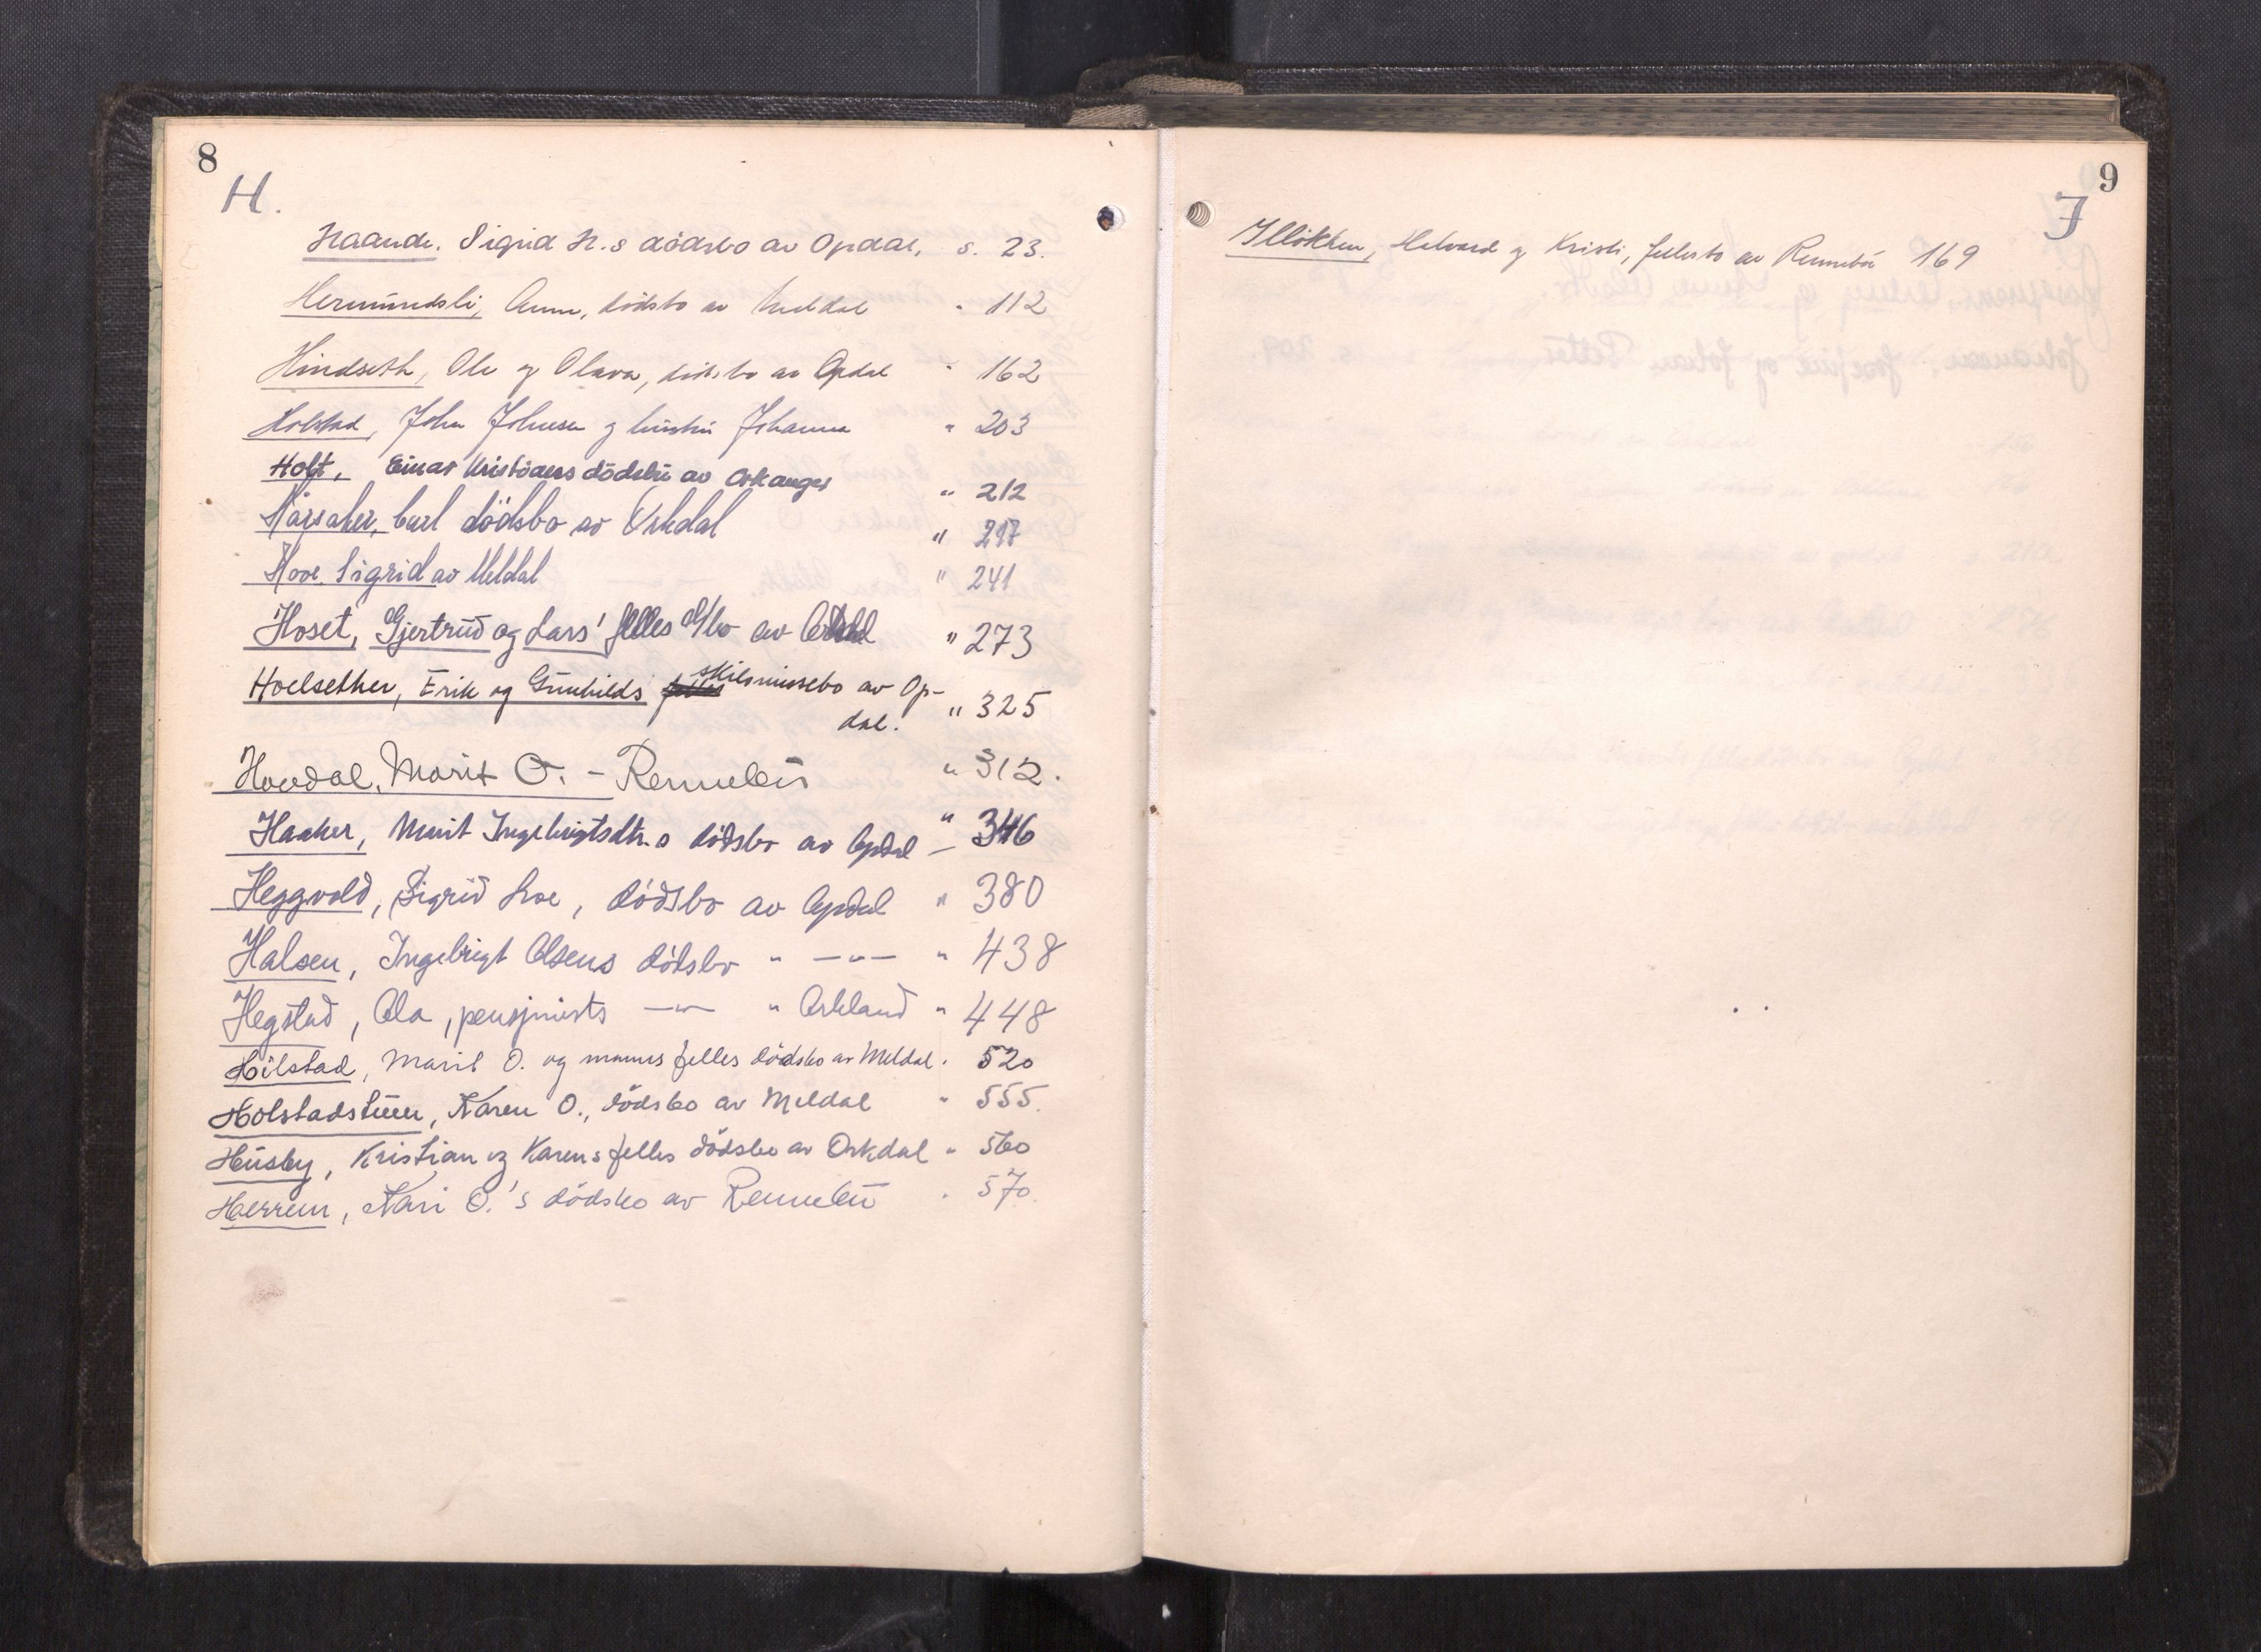 8
H.
Haande. Sigrid H.s dödsbo av Opdal, s. 23.
Hermundsli, Anne, dödsbo av Meldal " 112
Hindseth, Ole og Olava, dödsbo av Opdal " 162
Holstad, John Johnsen og hustru Johanna " 203
Holt, Einar Kristians dödsbu av Orkanger " 212
Hårsaker, Carl dödsbo av Orkdal " 217
Hove, Sigrid av Meldal " 241
Hoset, Gjertrud og Lars' felles d/bo av " 273
Hoelsether, Erik og Gunhilds skilsmissebo av Op-
dal. " 325
Hovdal, Marit O. - Rennebu " 312.
Haaker, Marit Ingebrigtsdtr.s dödsbo av Opdal " 346
Heggvold, Sigrid Loe, dödsbo av Opdal " 380
Halsen, Ingebrigt Olsens dödsbo " —"— " 438
Hegstad, Ola, pensjonists —"— " Orkland " 448
Hilstad, Marit O. og manns felles dödsbo av Meldal. 520
Holstadstuen, Karen O., dödsbo av Meldal " 555.
Husby, Kristian og Karens felles dödsbo av Orkdal " 560
Herrem, Kari O.'s dödsbo av Rennebu " 570.
9
I
Illökken, Halvard og Kristi, fellesbo av Rennebu 169